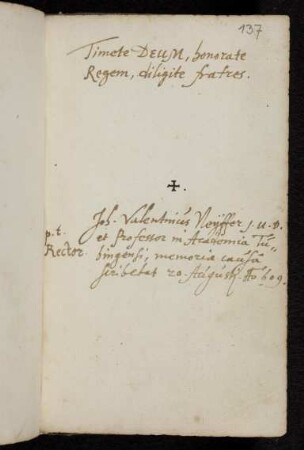 137
Timete DEUM, honorate
Regem, diligite fratres.
Joh. Valentinus Neyffer J. U. D.
p. t. et Professor in Academia Tu=
Rector. bingensi, memoriæ causâ
scribebat 20. Augusti. Ao 609.